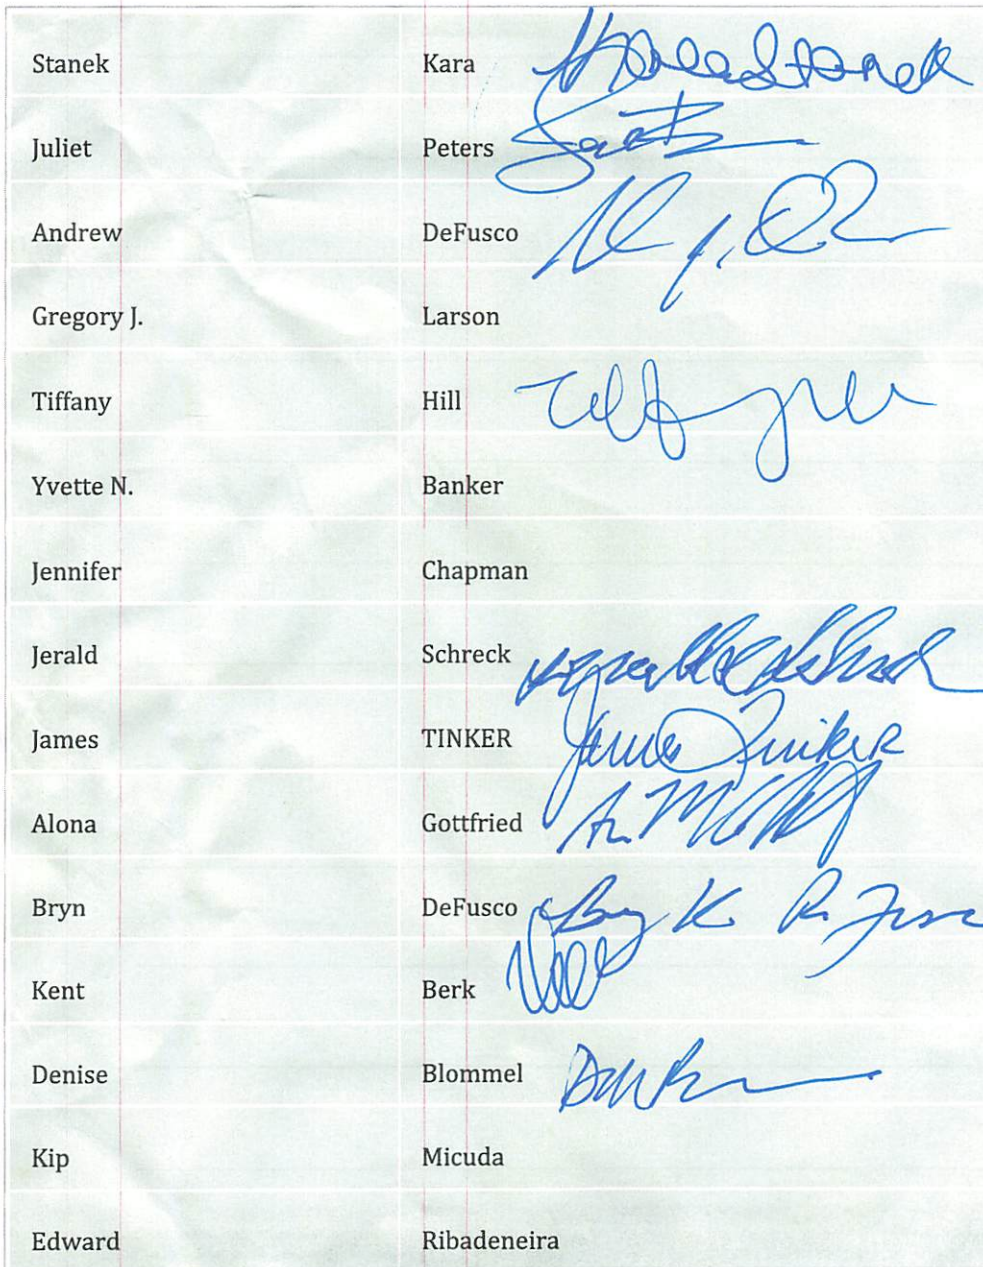 Stanek Kara Kara Stanek
Juliet Peters
Andrew DeFusco
Gregory J. Larson
Tiffany Hill
Yvette N. Banker
Jennifer Chapman
Jerald Schreck
James TINKER James Tinker
Alona Gottfried
Bryn DeFusco
Kent Berk
Denise Blommel
Kip Micuda
Edward Ribadeneira